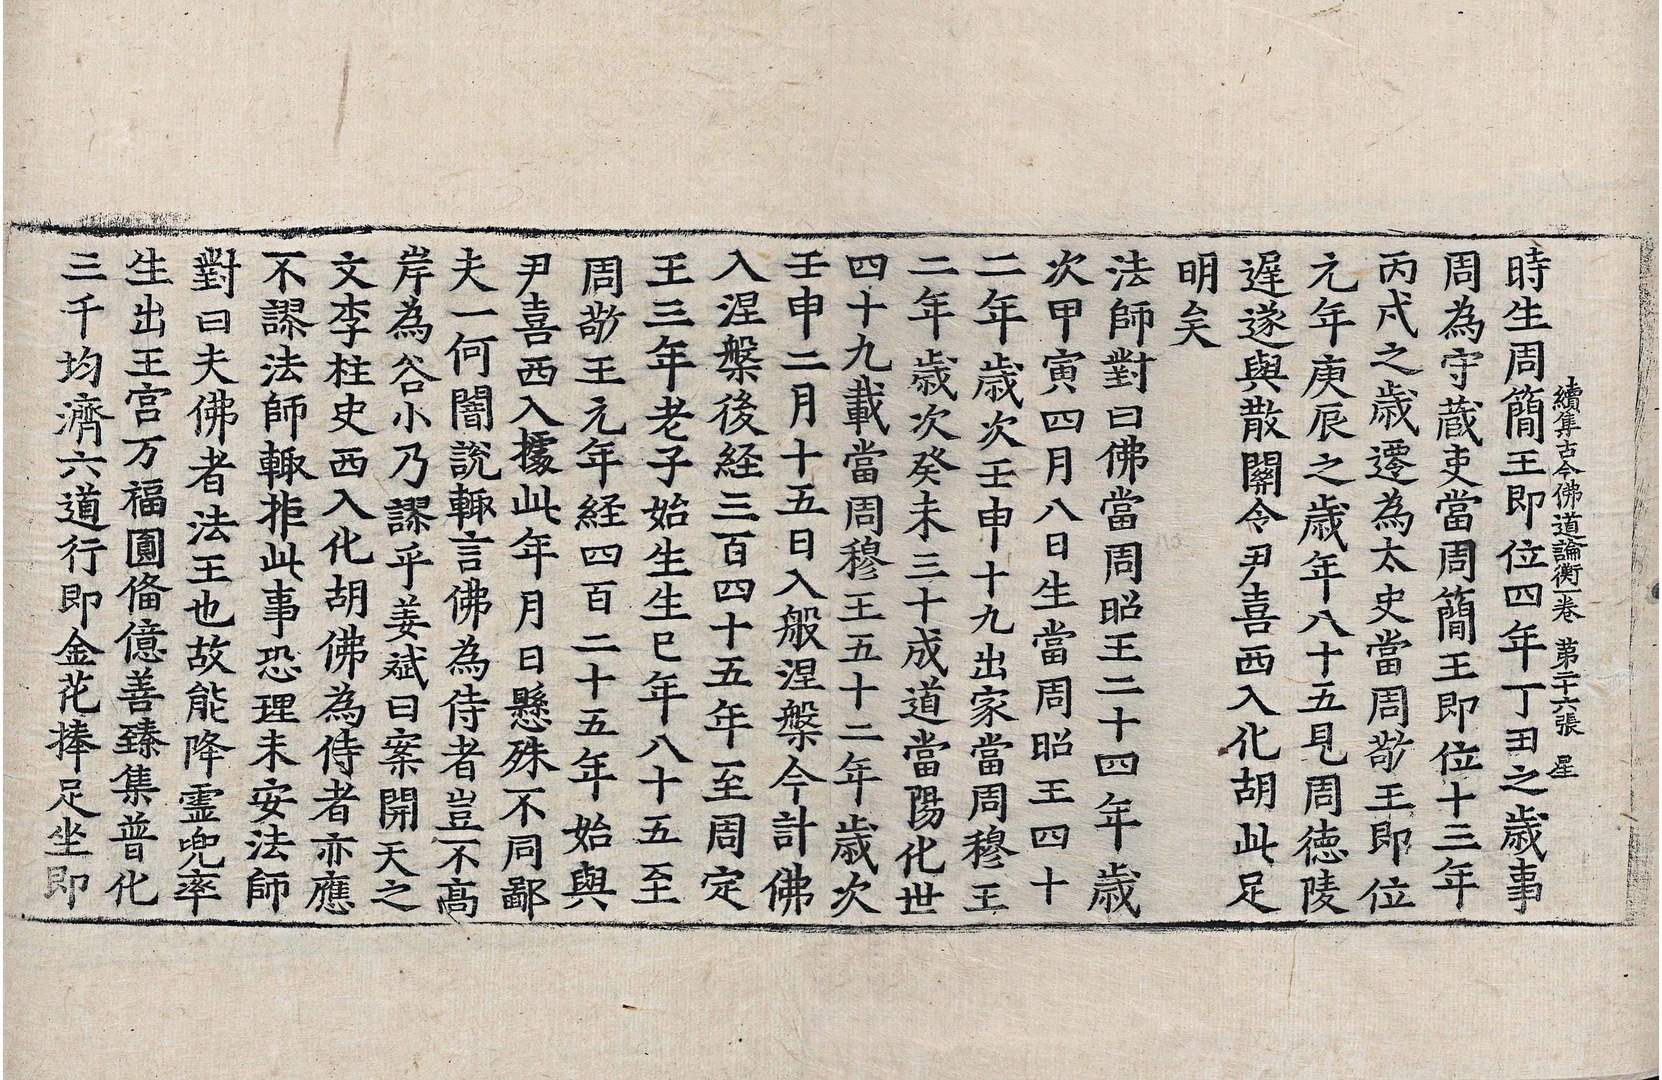 續集古今佛道論衡一卷 第二十六張 星
時生周簡王即位四年丁丑之歲事
周為守蔵吏當周簡王即位十三年
丙戌之歲遷為太史當周敬王即位
元年庚辰之歲年八十五見周德陵
遲遂與散關令尹喜西入化胡此足
明矣
法師對曰佛當周昭王二十四年歲
次甲寅四月八日生當周昭王四十
二年歲次壬申十九出家當周穆王
二年歲次癸未三十成道當陽化世
四十九載當周穆王五十二年歲次
壬申二月十五日入般涅槃今計佛
入涅槃後経三百四十五年至周定
王三年老子始生生巳年八十五至
周敬王元年経四百二十五年始與
尹喜西入據此年月日懸殊不同鄙
夫一何闇說輙言佛為侍者豈不髙
岸為谷小乃謬乎姜斌曰案開天之
文李柱史西入化胡佛為侍者亦應
不謬法師輙拒此事恐理未安法師
對曰夫佛者法王也故能降霊兜率
生出王宮万福圓俻億善臻集普化
三千均濟六道行即金花捧足坐即